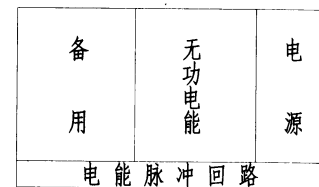 备用
无功电能
电源
电能脉冲回路